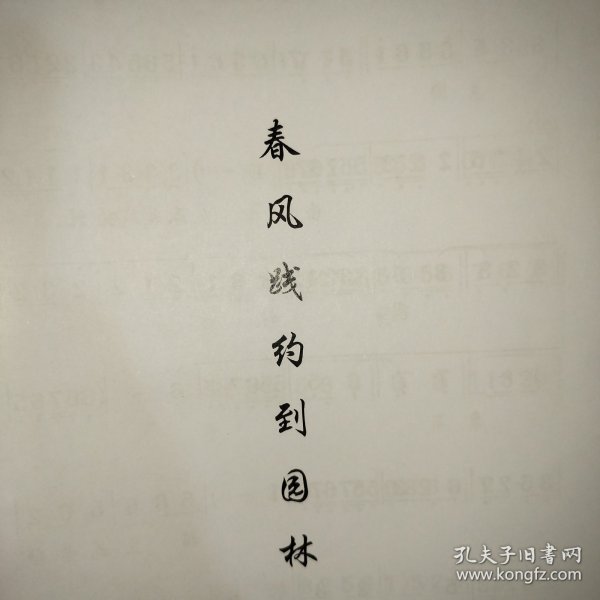 春风践约到园林
孔夫子旧书网
www.kongfz.com